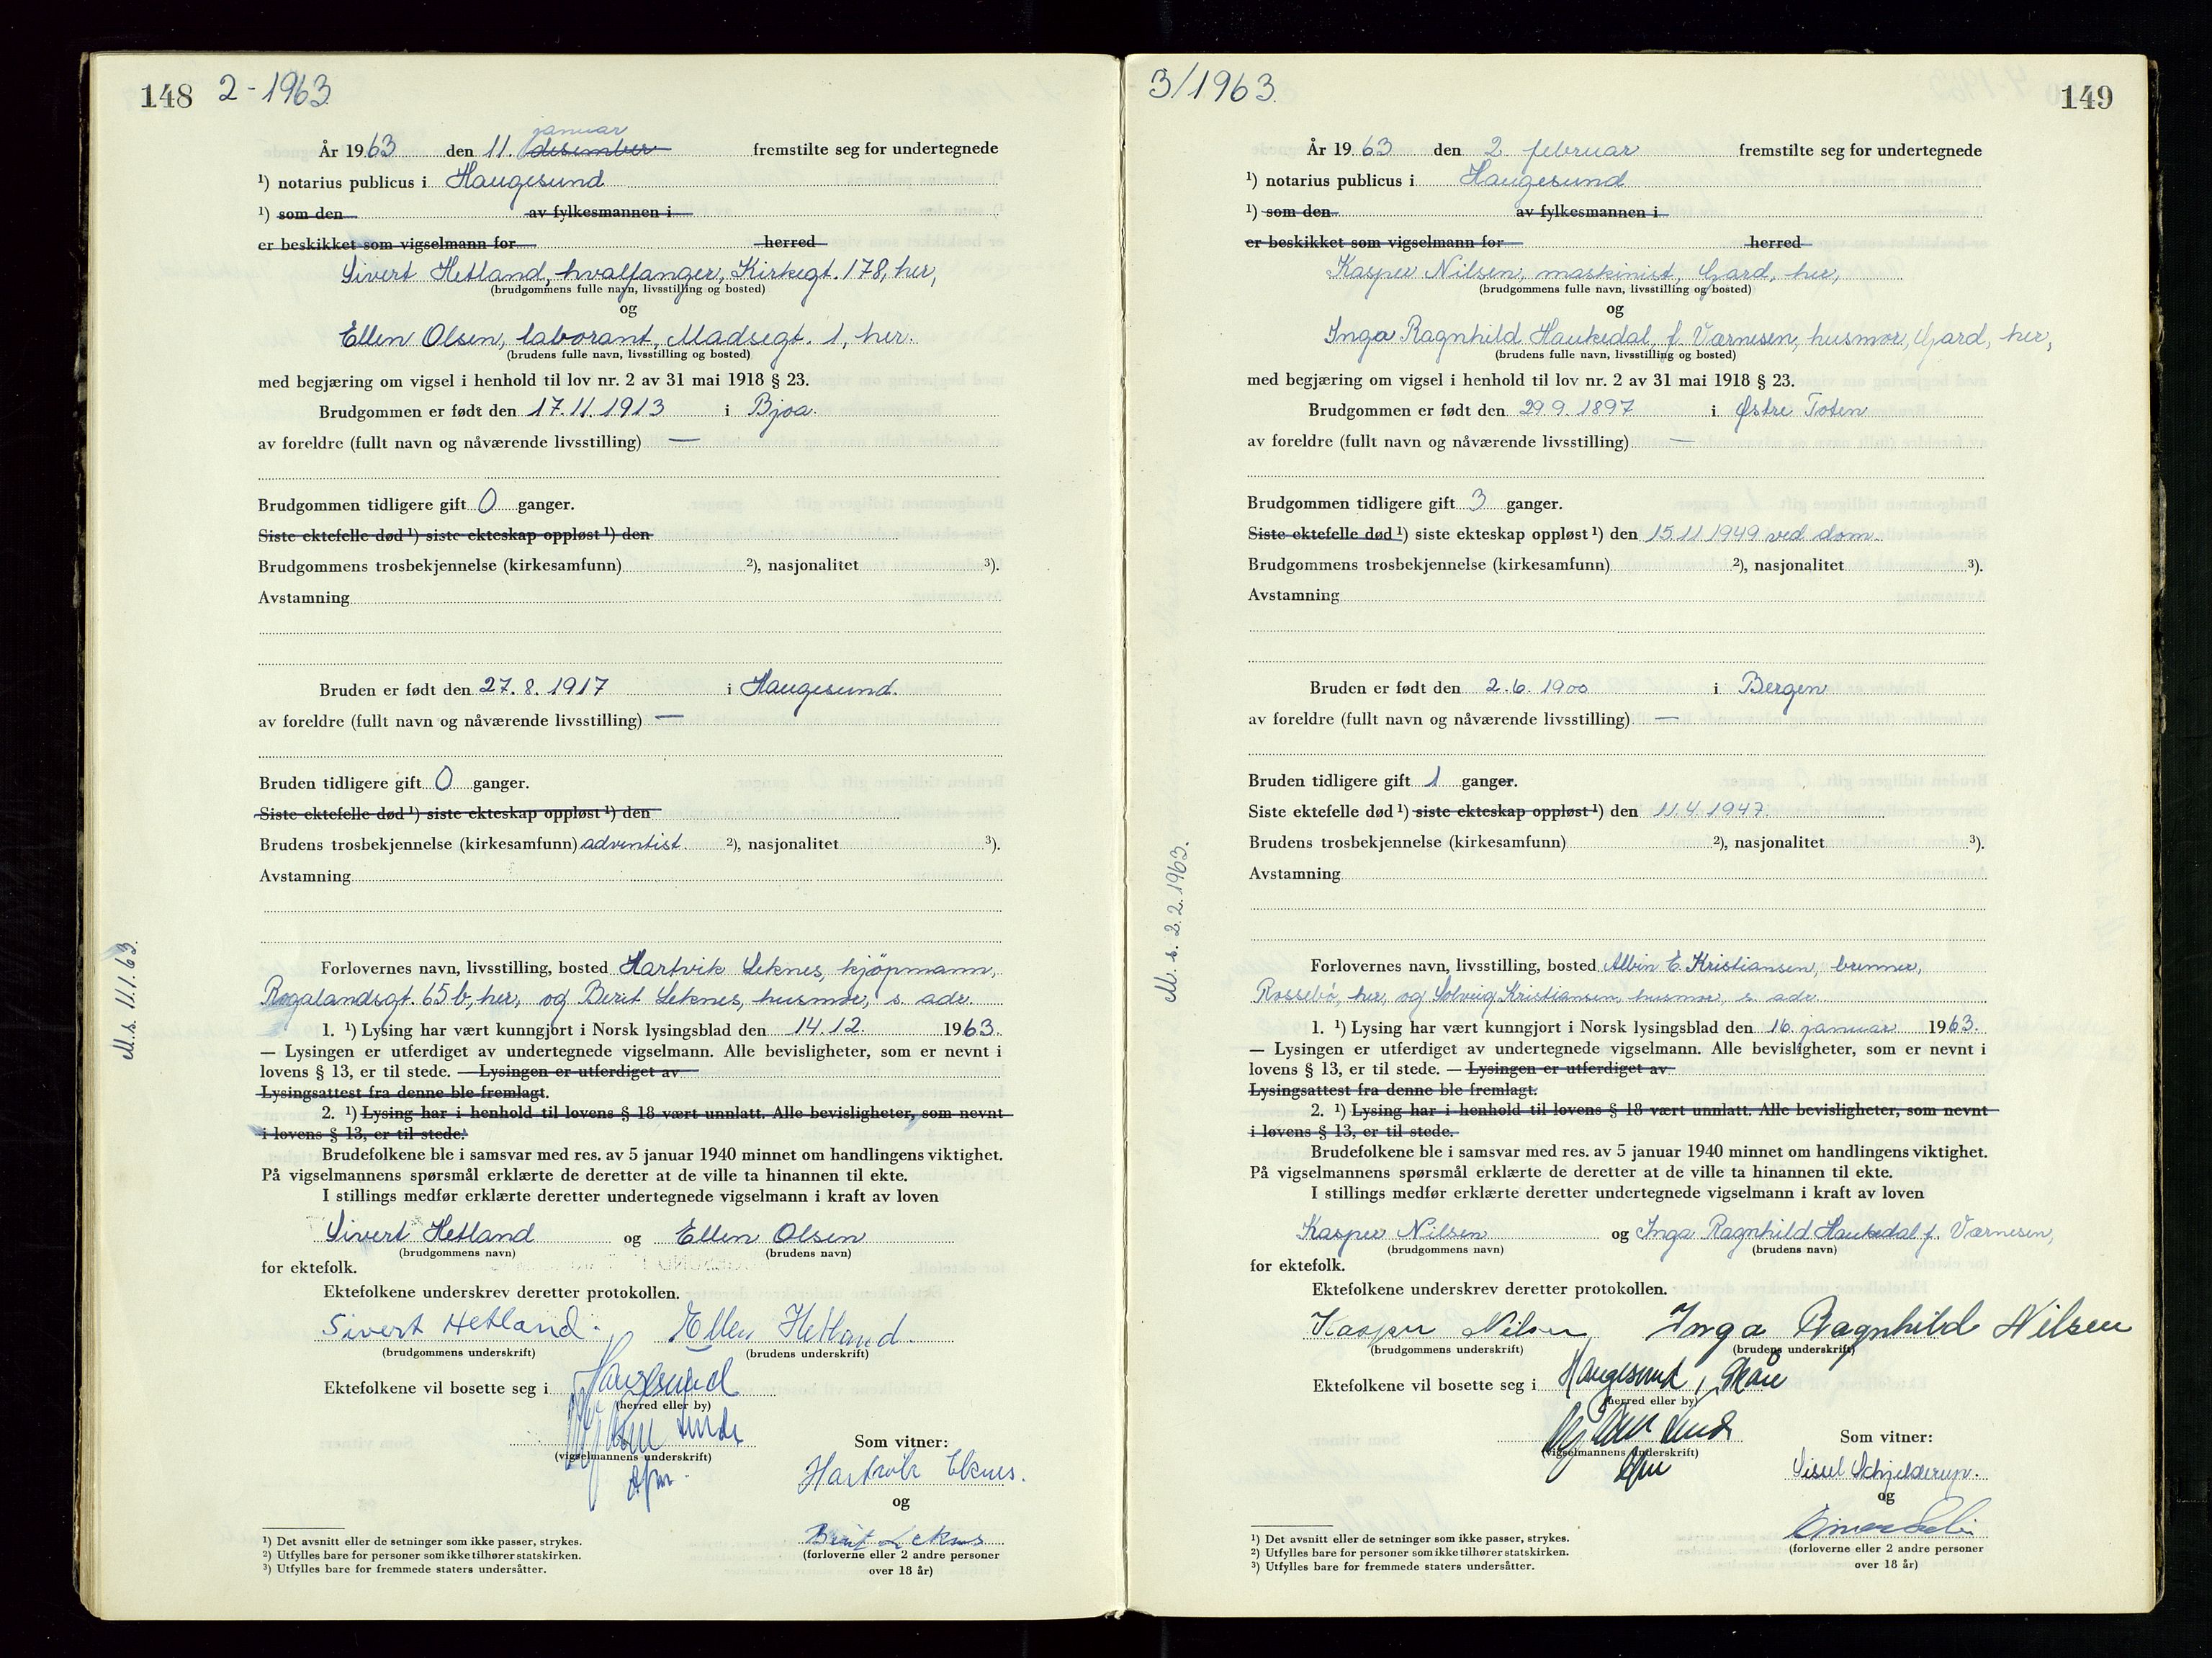 148 2-1963.
januar
År 1963 den 11. desember fremstilte seg for undertegnede
¹) notarius publicus i Haugesund
¹) som den av fylkesmannen i
er beskikket som vigselmann for herred
Sivert Hetland, hvalfanger, Kirkegt. 178, her,
(brudgommens fulle navn, livsstilling og bosted)
og
Ellen Olsen, laborant, Madsegt. 1, her.
(brudens fulle navn, livsstilling og bosted)
med begjæring om vigsel i henhold til lov nr. 2 av 31 mai 1918 § 23.
Brudgommen er født den 17.11.1913 i Bjoa.
av foreldre (fullt navn og nåværende livsstilling) —
Brudgommen tidligere gift 0 ganger.
Siste ektefelle død ¹) siste ekteskap oppløst ¹) den
Brudgommens trosbekjennelse (kirkesamfunn) ²), nasjonalitet ³).
Avstamning
Bruden er født den 27.8.1917 i Haugesund.
av foreldre (fullt navn og nåværende livsstilling) —
Bruden tidligere gift 0 ganger.
Siste ektefelle død ¹) siste ekteskap oppløst ¹) den
Brudens trosbekjennelse (kirkesamfunn) adventist. ²), nasjonalitet ³).
Avstamning
M.s. 11.1.63.
Forlovernes navn, livsstilling, bosted Hartvik Leknes, kjøpmann,
Rogalandsgt. 65 b, her, og Berit Leknes, husmor, s. adr.
1. ¹) Lysing har vært kunngjort i Norsk lysingsblad den 14.12. 1963.
— Lysingen er utferdiget av undertegnede vigselmann. Alle bevisligheter, som er nevnt i
lovens § 13, er til stede. — Lysingen er utferdiget av
Lysingsattest fra denne ble fremlagt.
2. ¹) Lysing har i henhold til lovens § 18 vært unnlatt. Alle bevisligheter, som nevnt
i lovens § 13, er til stede.
Brudefolkene ble i samsvar med res. av 5 januar 1940 minnet om handlingens viktighet.
På vigselmannens spørsmål erklærte de deretter at de ville ta hinannen til ekte.
I stillings medfør erklærte deretter undertegnede vigselmann i kraft av loven
Sivert Hetland og Ellen Olsen
(brudgommens navn) (brudens navn)
for ektefolk.
Ektefolkene underskrev deretter protokollen.
Sivert Hetland. Ellen Hetland.
(brudgommens underskrift) (brudens underskrift)
Ektefolkene vil bosette seg i Haugesund
(herred eller by)
Som vitner:
(vigselmannens underskrift)
Hartvik Leknes.
og
Berit Leknes
(forloverne eller 2 andre personer
over 18 år)
¹) Det avsnitt eller de setninger som ikke passer, strykes.
²) Utfylles bare for personer som ikke tilhører statskirken.
³) Utfylles bare for fremmede staters undersåtter.
3/1963. 149
År 1963 den 2. februar fremstilte seg for undertegnede
¹) notarius publicus i Haugesund
¹) som den av fylkesmannen i
er beskikket som vigselmann for herred
Kasper Nilsen, maskinist, Gard, her,
(brudgommens fulle navn, livsstilling og bosted)
og
Inga Ragnhild Haukedal, f. Værnesen, husmor, Gard, her,
(brudens fulle navn, livsstilling og bosted)
med begjæring om vigsel i henhold til lov nr. 2 av 31 mai 1918 § 23.
Brudgommen er født den 29.9.1897 i Østre Toten
av foreldre (fullt navn og nåværende livsstilling) —
Brudgommen tidligere gift 3 ganger.
Siste ektefelle død ¹) siste ekteskap oppløst ¹) den 15.11.1949 ved dom.
Brudgommens trosbekjennelse (kirkesamfunn) ²), nasjonalitet ³).
Avstamning
Bruden er født den 2.6.1900 i Bergen
av foreldre (fullt navn og nåværende livsstilling) —
Bruden tidligere gift 1 ganger.
Siste ektefelle død ¹) siste ekteskap oppløst ¹) den 11.4.1947.
Brudens trosbekjennelse (kirkesamfunn) ²), nasjonalitet ³).
Avstamning
M.s. 2.2.1963.
Forlovernes navn, livsstilling, bosted Albin E. Kristiansen, brenner,
Rossebø, her, og Solveig Kristiansen, husmor, s. adr.
1. ¹) Lysing har vært kunngjort i Norsk lysingsblad den 16. januar 1963.
— Lysingen er utferdiget av undertegnede vigselmann. Alle bevisligheter, som er nevnt i
lovens § 13, er til stede. — Lysingen er utferdiget av
Lysingsattest fra denne ble fremlagt.
2. ¹) Lysing har i henhold til lovens § 18 vært unnlatt. Alle bevisligheter, som nevnt
i lovens § 13, er til stede.
Brudefolkene ble i samsvar med res. av 5 januar 1940 minnet om handlingens viktighet.
På vigselmannens spørsmål erklærte de deretter at de ville ta hinannen til ekte.
I stillings medfør erklærte deretter undertegnede vigselmann i kraft av loven
Kasper Nilsen og Inga Ragnhild Haukedal f. Værnesen,
(brudgommens navn) (brudens navn)
for ektefolk.
Ektefolkene underskrev deretter protokollen.
Kasper Nilsen Inga Ragnhild Nilsen
(brudgommens underskrift) (brudens underskrift)
Ektefolkene vil bosette seg i Haugesund, Skåre
(herred eller by)
Som vitner:
(vigselmannens underskrift)
Sissel Schjelderup.
og
(forloverne eller 2 andre personer
over 18 år)
¹) Det avsnitt eller de setninger som ikke passer, strykes.
²) Utfylles bare for personer som ikke tilhører statskirken.
³) Utfylles bare for fremmede staters undersåtter.